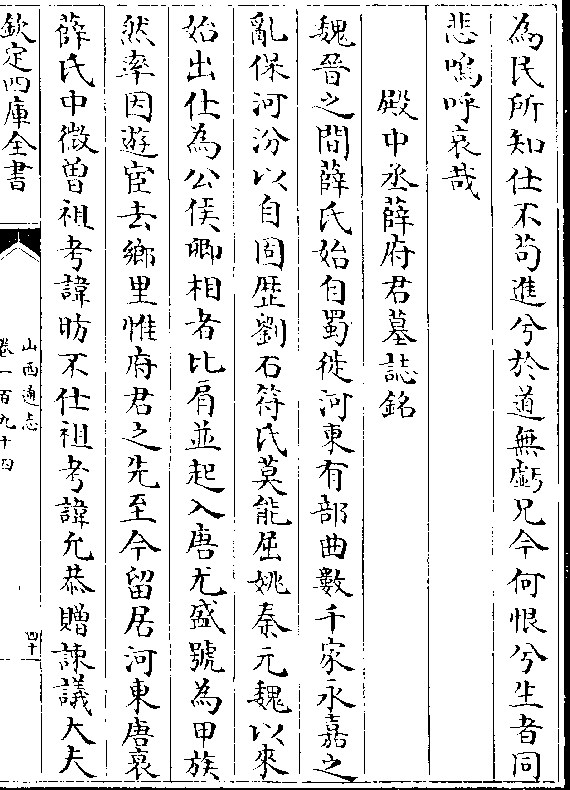 為民所知仕不茍進兮於道無虧兄今何恨兮生者同
悲嗚呼哀哉
殿中丞薛府君墓誌銘
魏晉之間薛氏始自蜀徙河東有部曲數千家永嘉之
亂保河汾以自固歴劉石符氏莫能屈姚秦元魏以來
始出仕為公侯卿相者比肩並起入唐尤盛號為甲族
然率因遊宦去鄉里惟府君之先至今留居河東唐衰
薛氏中微曽祖考諱昉不仕祖考諱允恭贈諫議大夫
欽定四庫全書
山西通志
卷一百九十四
四十